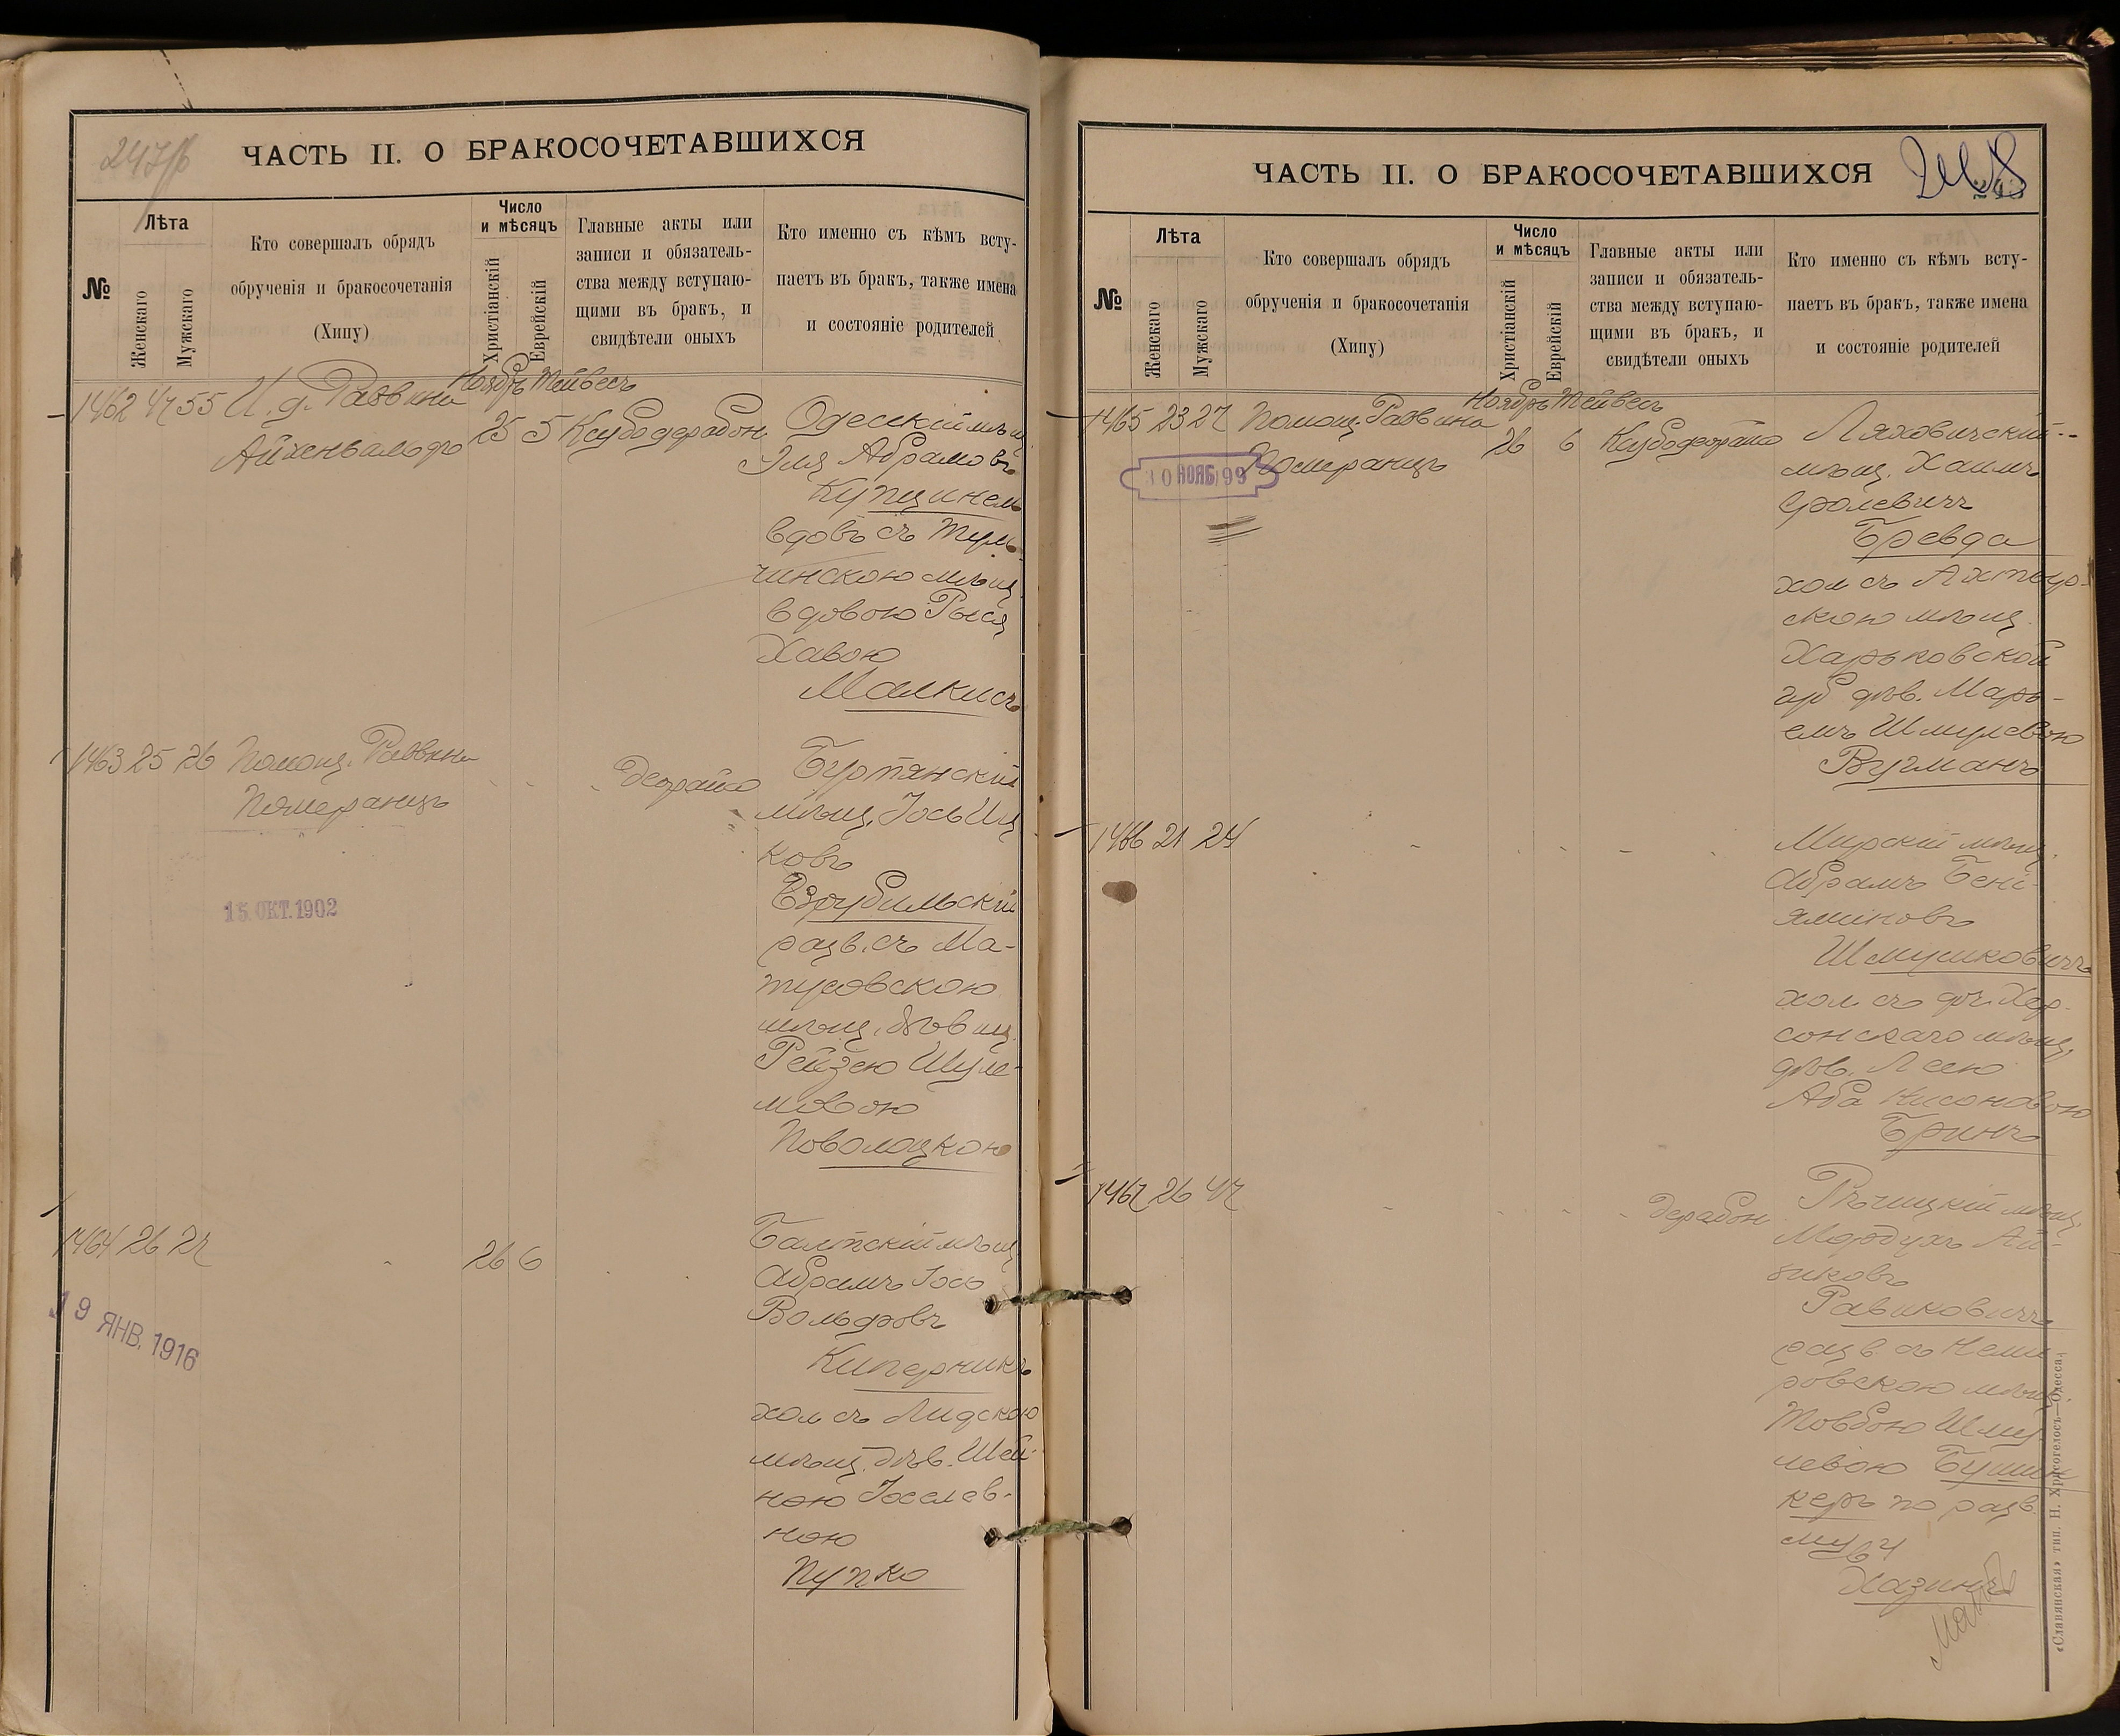 247/б
ЧАСТЬ II. О БРАКОСОЧЕТАВШИХСЯ
№
Лѣта
Женскаго
Мужскаго
Кто совершалъ обрядъ
обрученія и бракосочетанія
(Хипу)
Число
и мѣсяцъ
Христіанскій
Еврейскій
Главные акты или
записи и обязатель-
ства между вступаю-
щими въ бракъ, и
свидѣтели оныхъ
Кто именно съ кѣмъ всту-
паетъ въ бракъ, также имена
и состояніе родителей
Ноябрь Тейвесъ
1462 47 55 И. д. Раввина
Айхенвальдъ
25 5
Одесскій мѣщ.
Эля Абрамовъ
Купчинель
вдов. съ Туль-
чинскою мѣщ.
вдовою Рыся
Хавою
Малкисъ
1463 25 26 Помощ. Раввина
Померанцъ
15. ОКТ. 1902
мѣщ. Іось Иц
ковъ
разв. съ Ма-
тусовскою
мѣщ. дѣвиц.
Рейзею Шуле-
мовою
Поволоцкою
1464 26 27
26 6
19 ЯНВ. 1916
Балтскій мѣщ.
Абрамъ Іось
Вольфовъ
Киперникъ
хол. съ Лидскою
мѣщ. дѣв. Шей-
ною Іоселев-
ною
Пупко
ЧАСТЬ II. О БРАКОСОЧЕТАВШИХСЯ
248
№
Лѣта
Женскаго
Мужскаго
Кто совершалъ обрядъ
обрученія и бракосочетанія
(Хипу)
Число
и мѣсяцъ
Христіанскій
Еврейскій
Главные акты или
записи и обязатель-
ства между вступаю-
щими въ бракъ, и
свидѣтели оныхъ
Кто именно съ кѣмъ всту-
паетъ въ бракъ, также имена
и состояніе родителей
Ноябрь Тейвесъ
1465 23 27 Помощ. Раввина
Померанцъ
26 6
30 НОЯБ 99
Ляховичскій
мѣщ. Хаимъ
Сролевичъ
Бревда
хол. съ Ахтыр-
скою мѣщ.
Харьковской
губ. дѣв. Марь-
емъ Шмулевою
Вугманъ
1466 21 24
Мирскій мѣщ.
Абрамъ Бені-
яминовъ
Шмушковичъ
хол. съ доч. Хер-
сонскаго мѣщ.
дѣв. Леею
Аба Нисоновою
Бринъ
1467 26 47
Рѣчицкій мѣщ.
Мордухъ Ай-
зиковъ
Равиковичъ
разв. съ Неми
ровскою мѣщ.
Товбою Шму-
левою
керъ по разв.
мужу
Хазинъ
«Славянская» тип. Н. Хрисогелосъ—Одесса